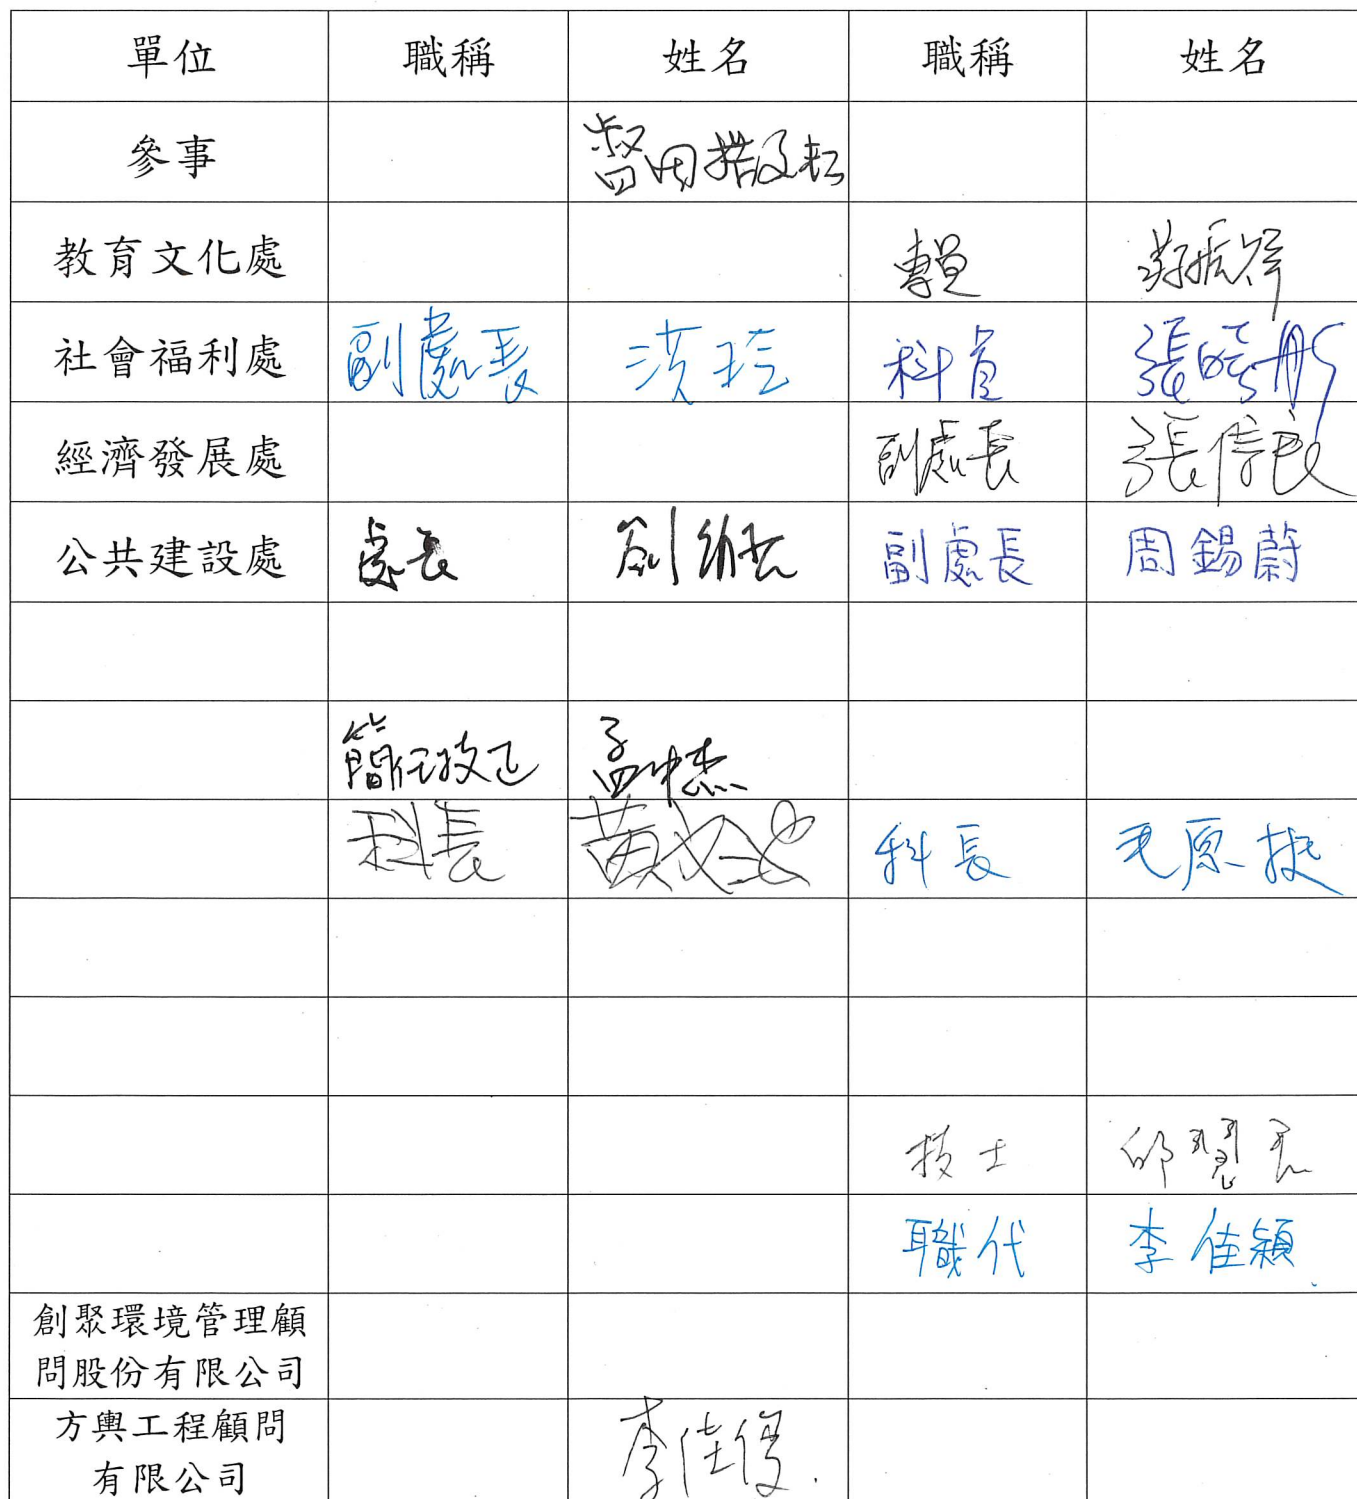 單位 職稱 姓名 職稱 姓名
參事
教育文化處 專員
社會福利處 副處長 洪玲 科員 張皓彤
經濟發展處 副處長 張信良
公共建設處 處長 劉維哲 副處長 周錫蔚
簡任技正 孟中杰
科長 黃 科長 毛原挺
技士 邱
職代 李佳穎
創聚環境管理顧
問股份有限公司
方輿工程顧問
有限公司
李佳